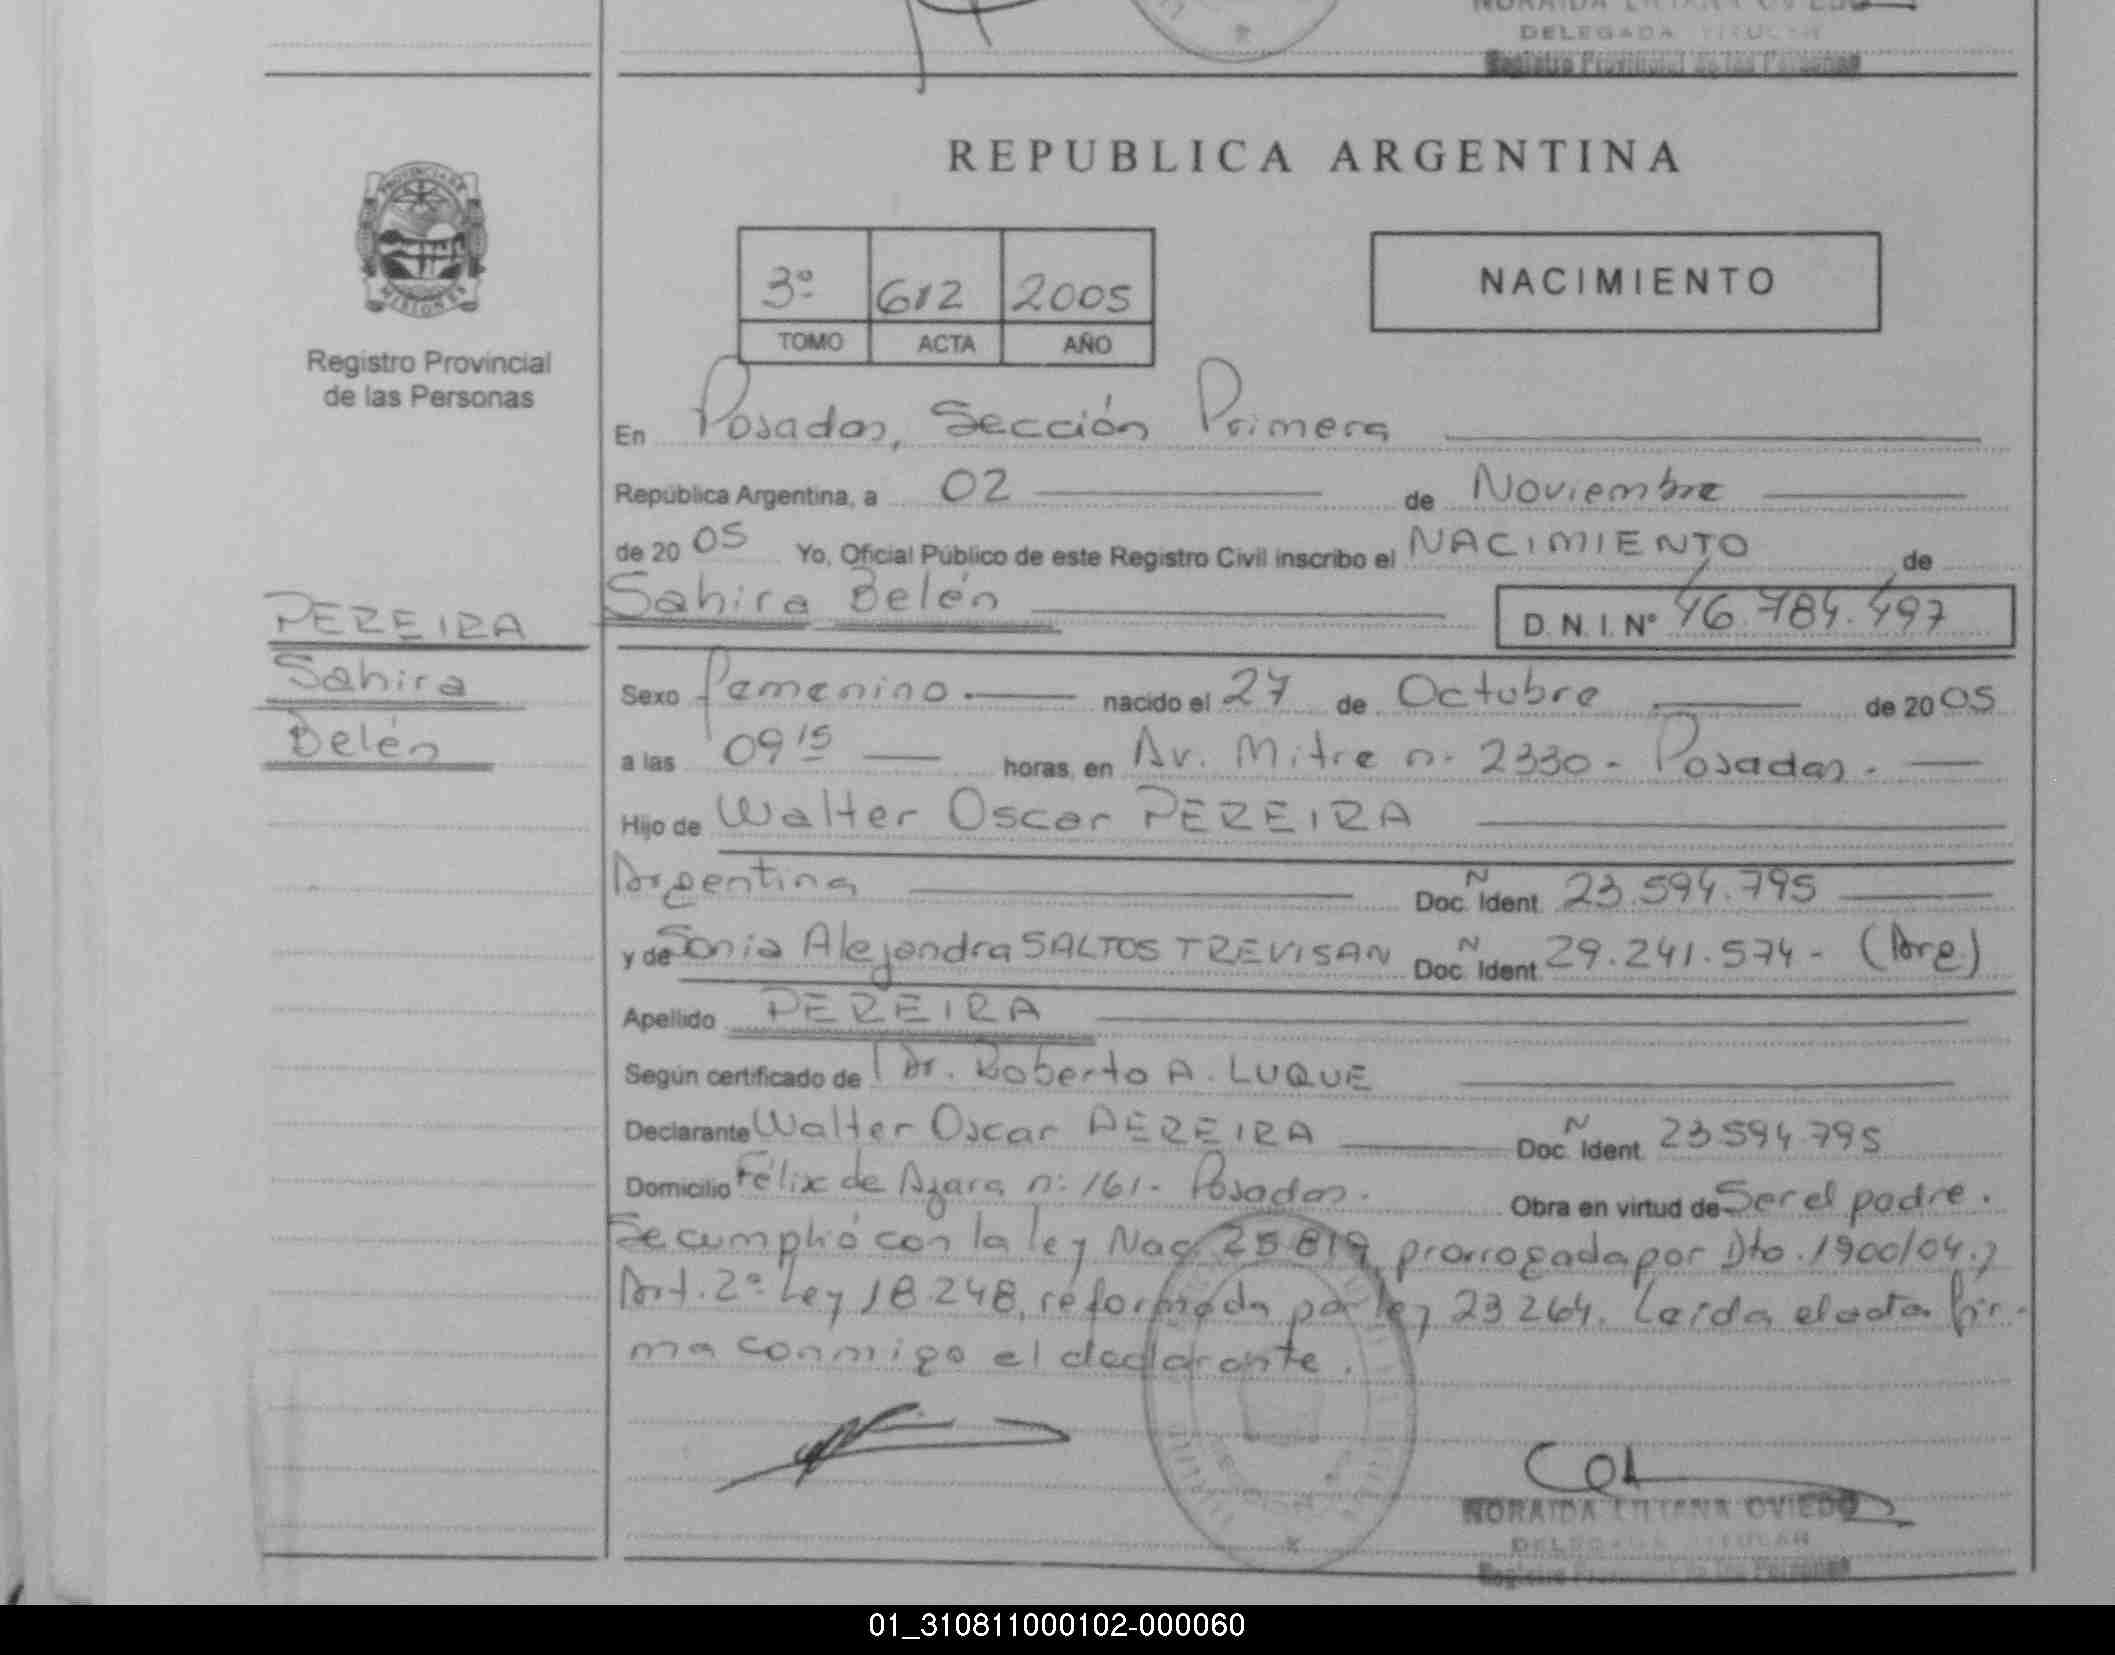 NORAIDA LILIANA OVIEDO
DELEGADA TITULAR
Registro Provincial de las Personas
REPUBLICA ARGENTINA
PROVINCIA DE
MISIONES
Registro Provincial
de las Personas
3º 612 2005
TOMO ACTA AÑO
NACIMIENTO
En Posadas, Sección Primera
República Argentina, a 02 de Noviembre
de 20 05 Yo, Oficial Público de este Registro Civil inscribo el NACIMIENTO de
Sahira Belén D.N.I. Nº 46.784.497
PEREIRA
Sahira
Belén
Sexo femenino.- nacido el 27 de Octubre de 20 05
a las 09 15 horas, en Av. Mitre n. 2330 - Posadas. -
Hijo de Walter Oscar PEREIRA
Argentina Doc. N Ident. 23.594.795
y de Sonia Alejandra SALTOS TREVISAN Doc. N Ident. 29.241.574 - (Arg)
Apellido PEREIRA
Según certificado de Dr. Roberto A. LUQUE
Declarante Walter Oscar PEREIRA Doc. N Ident. 23.594.795
Domicilio Félix de Azara n: 161 - Posadas. Obra en virtud de Ser el padre.
Se cumplió con la ley Nac. 25 819 prorrogada por Dto. 1900/04. y
Art. 2º Ley 18.248, reformada por ley 23 264. Leída el acta fir-
ma conmigo el declarante.
NORAIDA LILIANA OVIEDO
DELEGADA TITULAR
Registro Provincial de las Personas
01_310811000102-000060